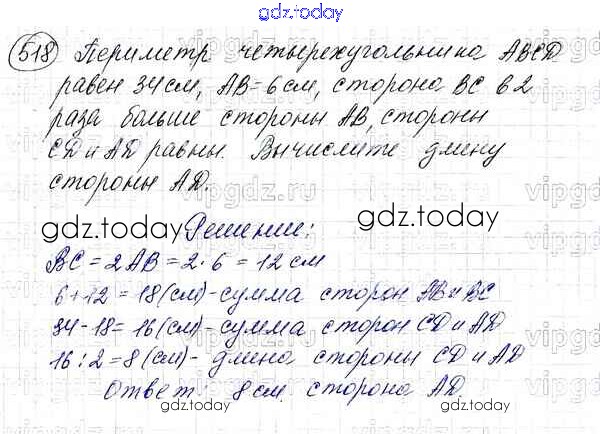 gdz.today
518 Периметр четырехугольника ABCD
равен 34 см, AB = 6 см, сторона BC в 2
раза больше стороны AB, стороны
CD и AD равны. Вычислите длину
стороны AD.
gdz.today Решение: gdz.today
BC = 2AB = 2·6 = 12 см
6+12 = 18 (см) - сумма сторон AB и BC
34-18 = 16 (см) - сумма сторон CD и AD
16:2 = 8 (см) - длина стороны CD и AD
Ответ: 8 см. сторона AD.
gdz.today gdz.today
vipgdz.ru